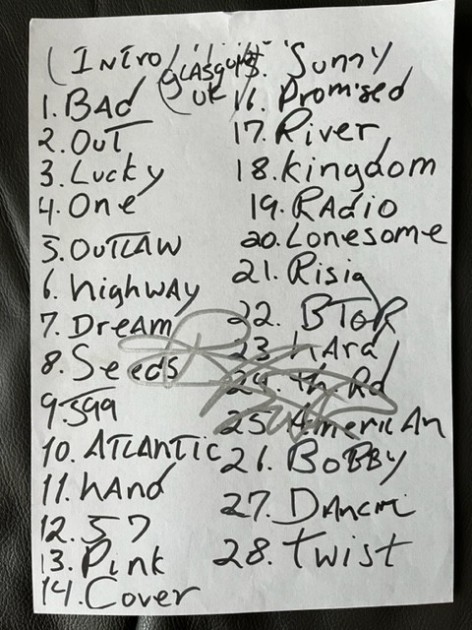 (Intro
1. Bad
2. Out
3. Lucky
4. One
5. Outlaw
6. highway
7. Dream
8. Seeds
9. Jgg
10. Atlantic
11. hand
12. 57
13. Pink
14. Cover
Glasgow
UK
15. Sunny
16. Promised
17. River
18. kingdom
19. Radio
20. Lonesome
21. Risig
22. BTOR
23 hard
24. th Rd
25 American
26. BOBBY
27. Danci
28. Twist